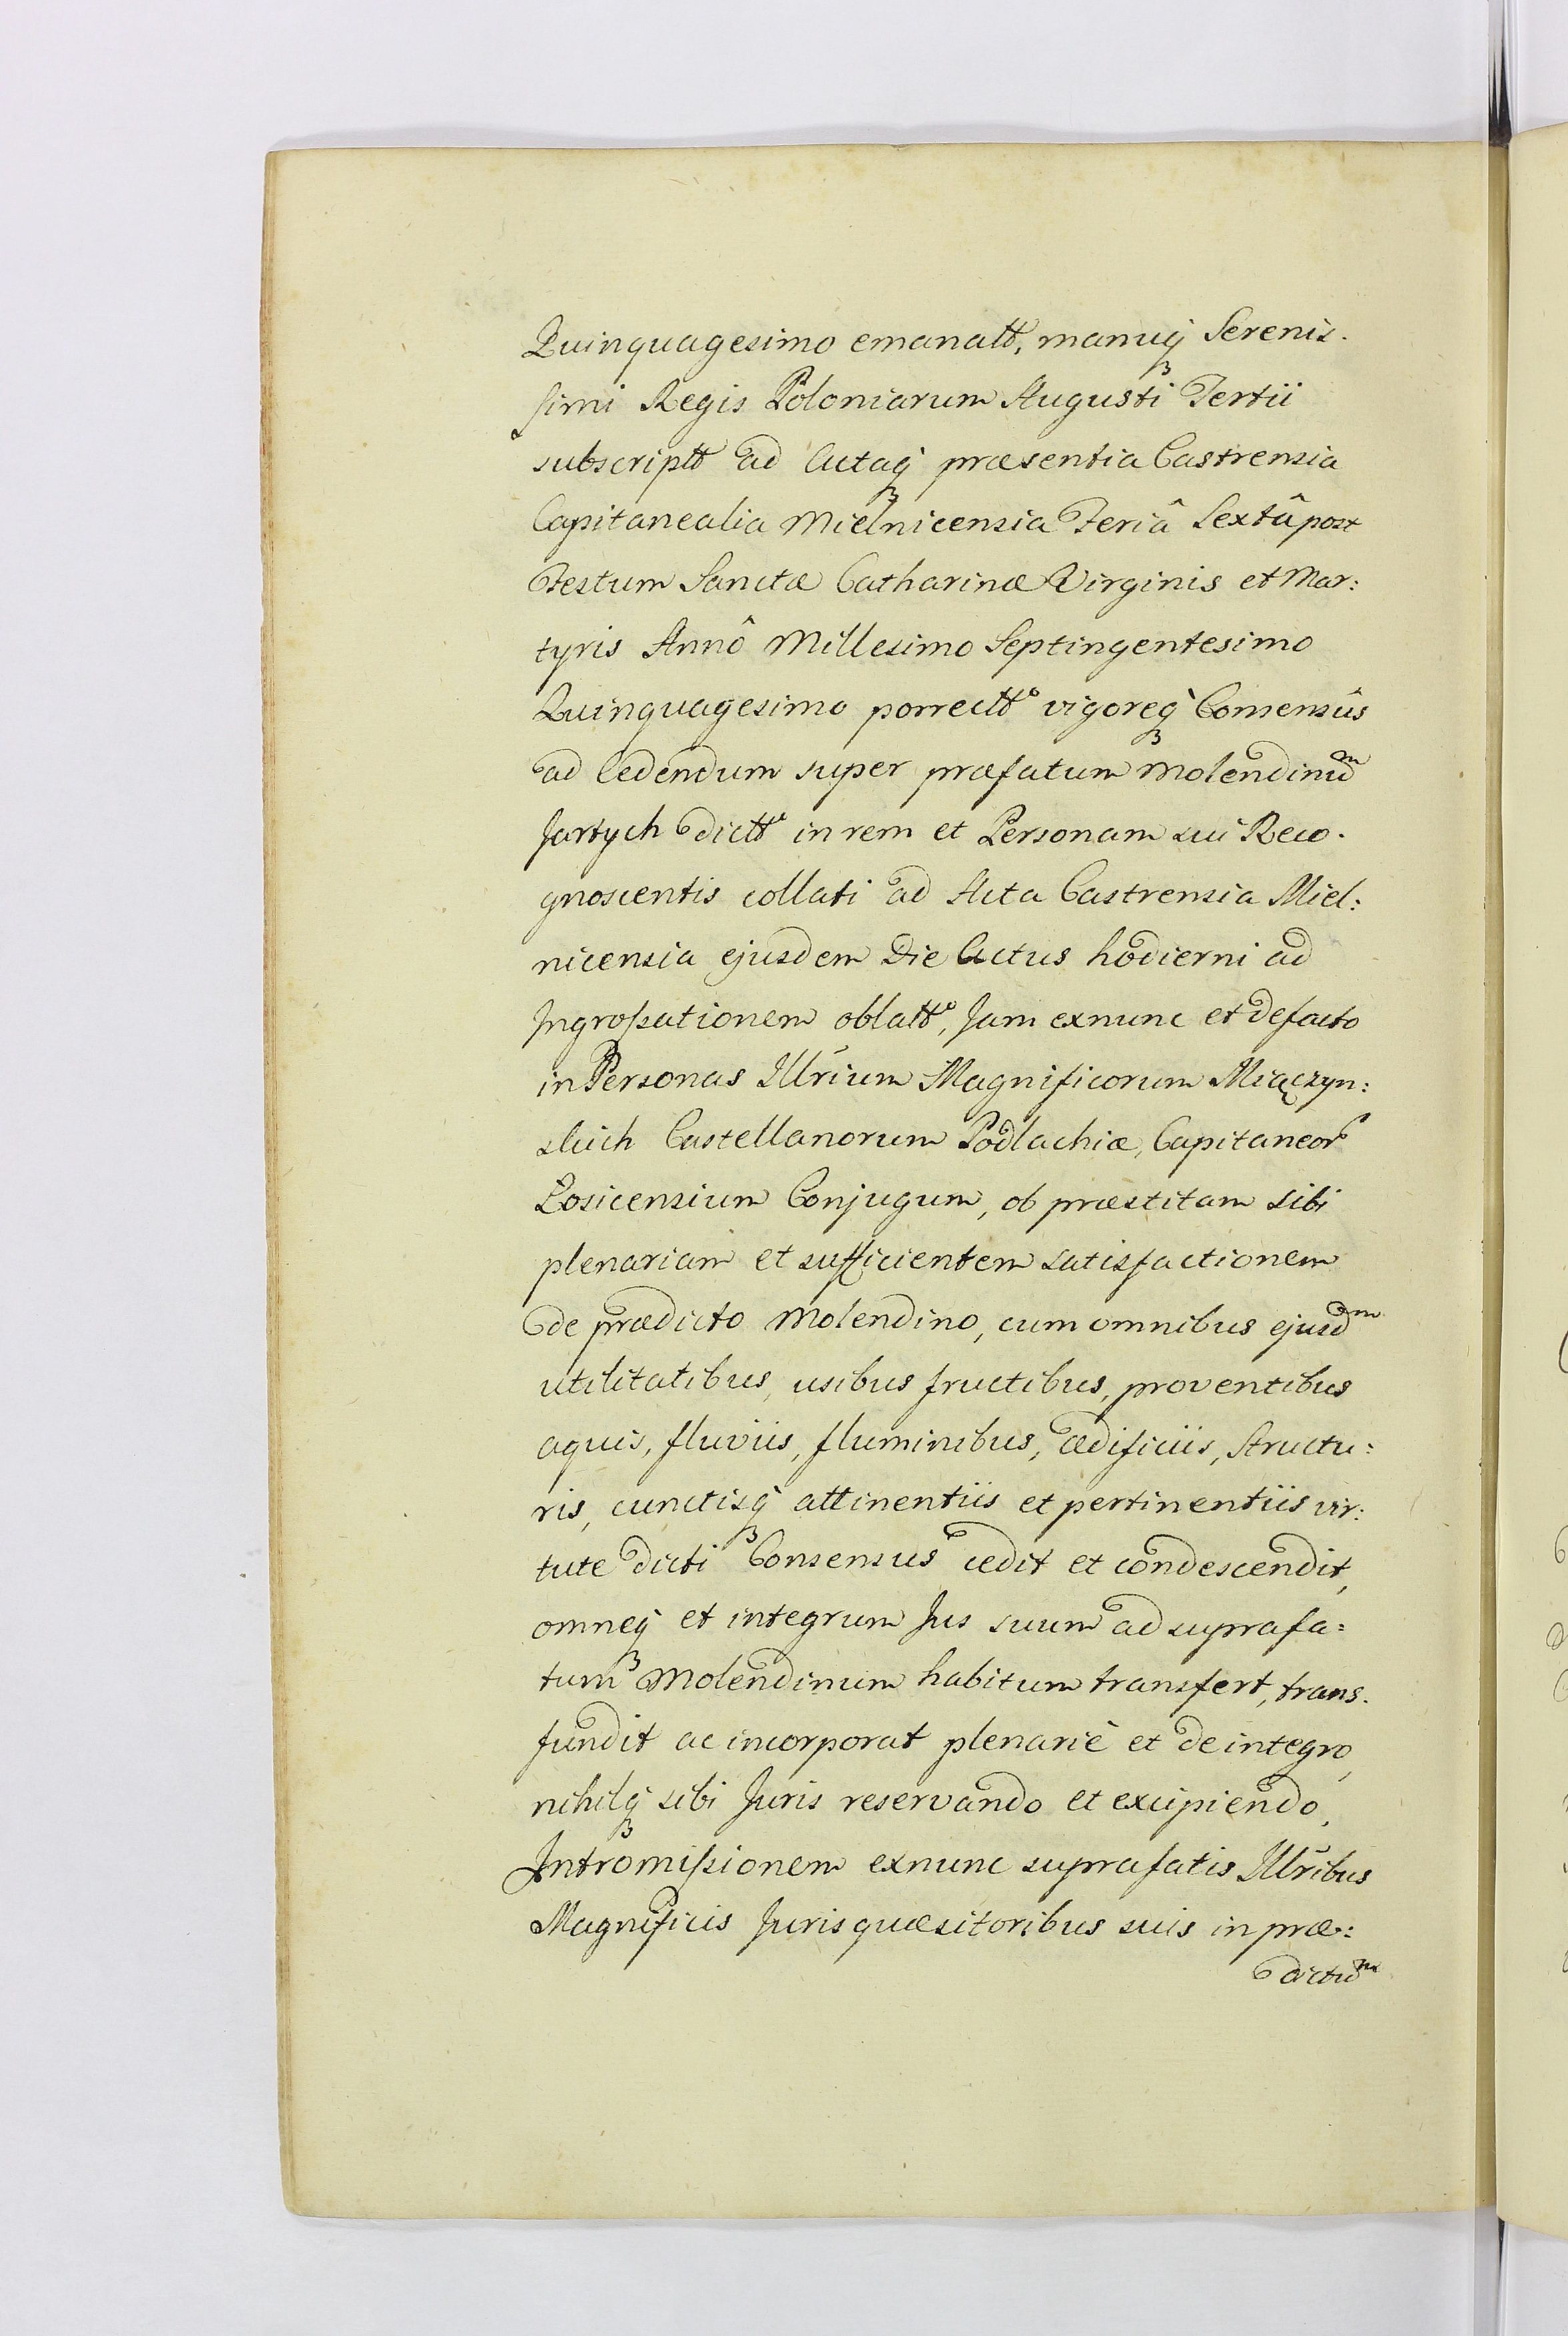 Quinquagesimo emanatt, manuq̃ Serenis.
simi Regis Poloniarum Augusti Tertii
subscriptt ad Actaq̃ præsentia Castrensia
Capitanealia Mielnicensia Feriâ Sextâ post
Festum Sanctæ Catharinæ Virginis et Mar:
tyris Annô Millesimo Septingentesimo
Quinquagesimo porrectt° vigoreq̃ Consensûs
ad Cedendum super præfatum Molendinu͞m
Jartych dictt° in rem et Personam sui Reco.
gnoscentis collati ad Acta Castrensia Miel:
nicensia ejusdem Die Actus hodierni ad
Ingrossationem oblatt°, Jam exnunc et defacto
in Personas Illr̃ium Magnificorum Miączyn:
skich Castellanorum Podlachiæ, Capitaneor
Losicensium Conjugum, ob præstitam sibi
plenariam et sufficientem satisfactionem
de prædicto Molendino, cum omnibus ejusd͞m
utilitatibus, usibus fructibus, proventibus
aquis, fluviis, fluminibus, ædificiis, Structu:
ris, cunctisq̃ attinentiis et pertinentiis vir:
tute dicti Consensus cedit et condescendit,
omneq̃ et integrum Jus suum ad suprafa:
tum Molendinum habitum transfert, trans.
fundit ac incorporat plenariè et de integro,
nihilq̃ sibi Juris reservando et excipiendo,
Intromissionem exnunc suprafatis Illr̃ibus
Magnificis Jurisquæsitoribus suis in præ:
dictu͞m